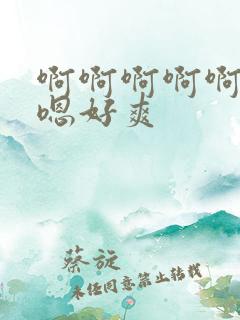 啊啊啊啊啊
嗯好爽
蔡旋
未经同意禁止转载